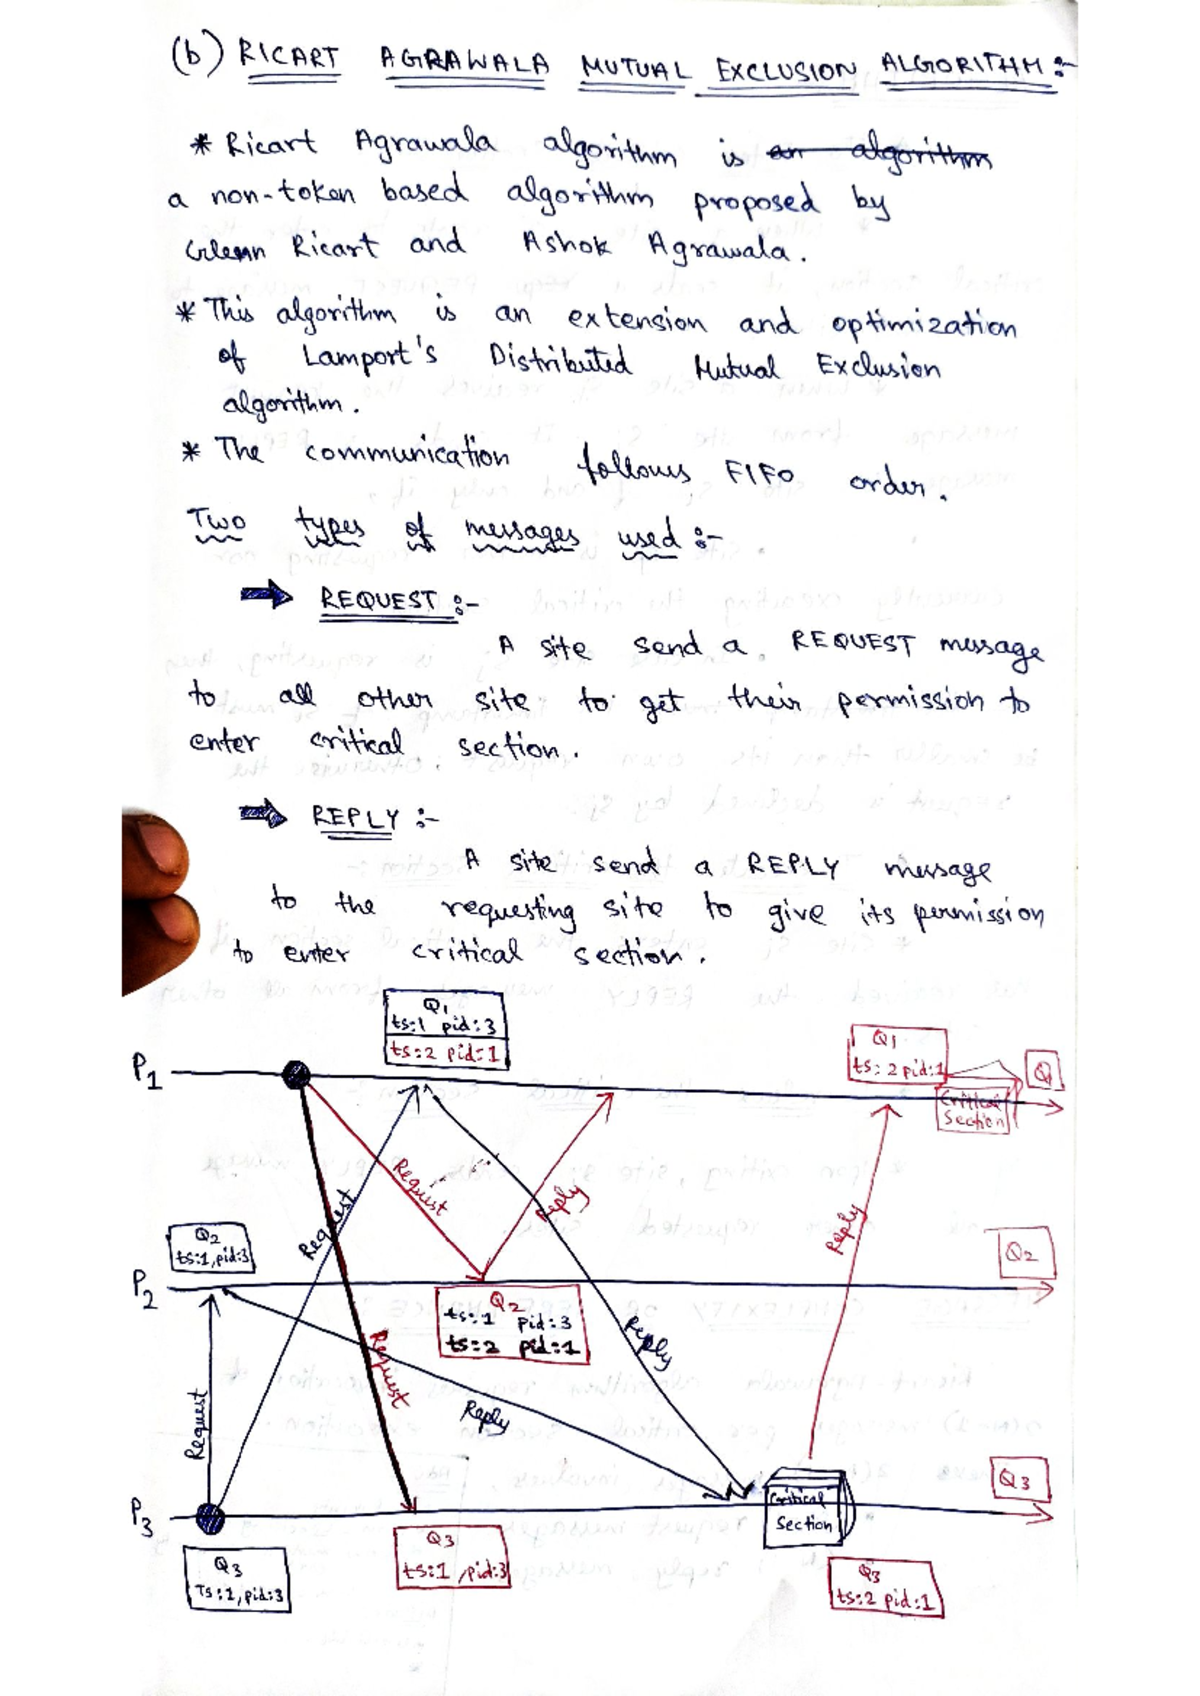 (b) RICART AGRAWALA MUTUAL EXCLUSION ALGORITHM :-
* Ricart Agrawala algorithm is an algorithm
a non-token based algorithm proposed by
Glenn Ricart and Ashok Agrawala.
* This algorithm is an extension and optimization
of Lamport's Distributed Mutual Exclusion
algorithm.
* The communication follows FIFO order.
Two types of messages used :-
REQUEST :-
A site send a REQUEST message
to all other site to get their permission to
enter critical section.
REPLY :-
A site send a REPLY message
to the requesting site to give its permission
to enter critical section.
Q1
ts:1 pid:3
ts:2 pid:1
Q1
ts:2 pid:1
Q
P1
Critical
Section
Request
Request
Reply
Reply
Q2
ts:1, pid:3
Q2
P2
Q2
ts:1 pid:3
ts:2 pid:1
Reply
Request
Request
Reply
Q3
P3
Critical
Section
Q3
ts:1, pid:3
Q3
Ts:1, pid:3
Q3
ts:2 pid:1